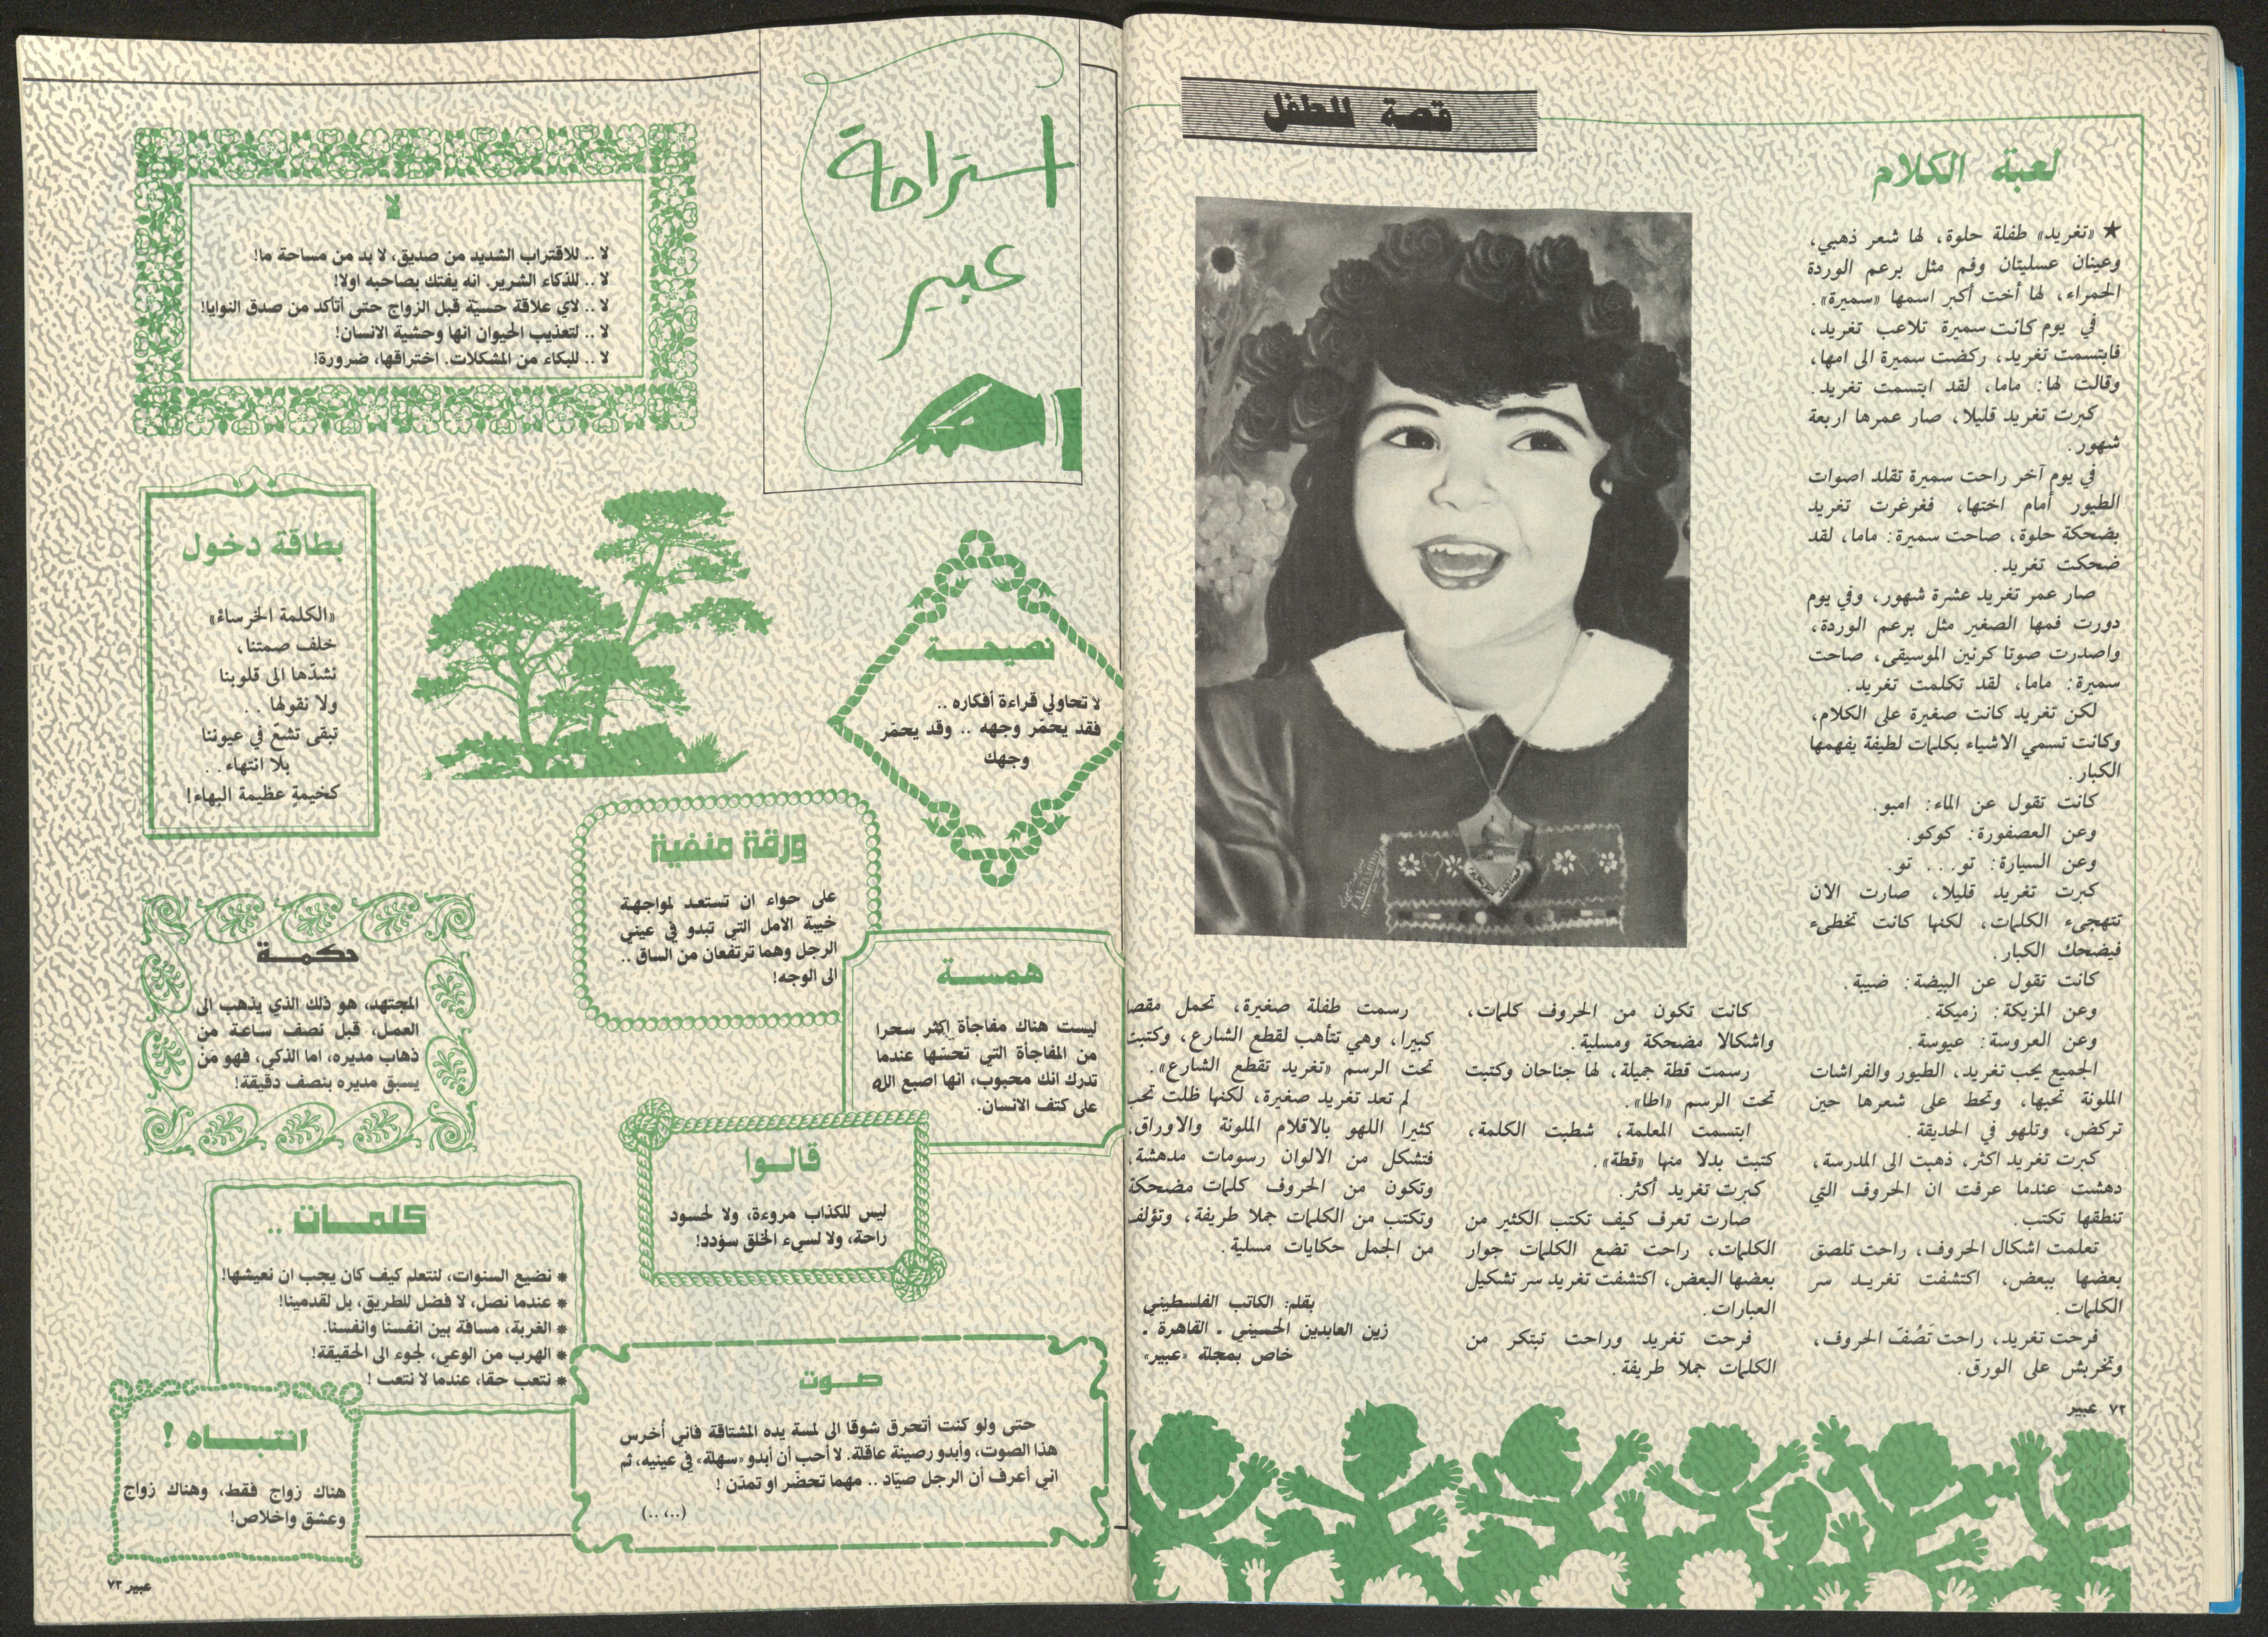 قصة للطفل
لعبة الكلام
★ «تغريد» طفلة حلوة، لها شعر ذهبي،
وعينان عسليتان وفم مثل برعم الوردة
الحمراء، لها أخت أكبر اسمها «سميرة».
في يوم كانت سميرة تلاعب تغريد،
فابتسمت تغريد، ركضت سميرة الى امها،
وقالت لها: ماما، لقد ابتسمت تغريد.
كبرت تغريد قليلا، صار عمرها اربعة
شهور.
في يوم آخر راحت سميرة تقلد اصوات
الطيور أمام اختها، فغرغرت تغريد
بضحكة حلوة، صاحت سميرة: ماما، لقد
ضحكت تغريد.
صار عمر تغريد عشرة شهور، وفي يوم
دورت فمها الصغير مثل برعم الوردة،
واصدرت صوتا كرنين الموسيقى، صاحت
سميرة: ماما، لقد تكلمت تغريد.
لكن تغريد كانت صغيرة على الكلام،
وكانت تسمي الاشياء بكلمات لطيفة يفهمها
الكبار.
كانت تقول عن الماء: امبو.
وعن العصفورة: كوكو.
وعن السيارة: تو... تو.
كبرت تغريد قليلا، صارت الان
تتهجىء الكلمات، لكنها كانت تخطىء
فيضحك الكبار.
كانت تقول عن البيضة: ضيبة.
وعن المزيكة: زميكة.
وعن العروسة: عيوسة.
الجميع يحب تغريد، الطيور والفراشات
الملونة تحبها، وتحط على شعرها حين
تركض، وتلهو في الحديقة.
كبرت تغريد اكثر، ذهبت الى المدرسة،
دهشت عندما عرفت ان الحروف التي
تنطقها تكتب.
تعلمت اشكال الحروف، راحت تلصق
بعضها ببعض، اكتشفت تغريد سر
الكلمات.
فرحت تغريد، راحت تَصُفّ الحروف،
وتخربش على الورق.
كانت تكون من الحروف كلمات،
واشكالا مضحكة ومسلية.
رسمت قطة جميلة، لها جناحان وكتبت
تحت الرسم «اطا».
ابتسمت المعلمة، شطبت الكلمة،
كتبت بدلا منها «قطة».
كبرت تغريد أكثر.
صارت تعرف كيف تكتب الكثير من
الكلمات، راحت تضع الكلمات جوار
بعضها البعض، اكتشفت تغريد سر تشكيل
العبارات.
فرحت تغريد وراحت تبتكر من
الكلمات جملا طريفة.
رسمت طفلة صغيرة، تحمل مقصا
كبيرا، وهي تتأهب لقطع الشارع، وكتبت
تحت الرسم «تغريد تقطع الشارع».
لم تعد تغريد صغيرة، لكنها ظلت تحب
كثيرا اللهو بالاقلام الملونة والاوراق،
فتشكل من الالوان رسومات مدهشة،
وتكون من الحروف كلمات مضحكة
وتكتب من الكلمات جملا طريفة، وتؤلف
من الجمل حكايات مسلية.
بقلم: الكاتب الفلسطيني
زين العابدين الحسيني ـ القاهرة ـ
خاص بمجلة «عبير»
٧٢ عبير
استراحة
عبير
لا
لا .. للاقتراب الشديد من صديق، لا بد من مساحة ما!
لا .. للذكاء الشرير. انه يفتك بصاحبه اولا!
لا .. لاي علاقة حسيّة قبل الزواج حتى أتأكد من صدق النوايا!
لا .. لتعذيب الحيوان انها وحشية الانسان!
لا .. للبكاء من المشكلات. اختراقها، ضرورة!
بطاقة دخول
«الكلمة الخرساء»
خلف صمتنا،
نشدّها الى قلوبنا
ولا نقولها . .
تبقى تشعّ في عيوننا
بلا انتهاء . .
كخيمةٍ عظيمة البهاء!
نصيحـة
لا تحاولي قراءة أفكاره ..
فقد يحمّر وجهه .. وقد يحمّر
وجهك
ورقة منفية
على حواء ان تستعد لمواجهة
خيبة الامل التي تبدو في عيني
الرجل وهما ترتفعان من الساق ..
الى الوجه!
همسـة
ليست هناك مفاجأة اكثر سحرا
من المفاجأة التي تحسّها عندما
تدرك انك محبوب، انها اصبع الله
على كتف الانسان.
حكمـة
المجتهد، هو ذلك الذي يذهب الى
العمل، قبل نصف ساعة من
ذهاب مديره، اما الذكي، فهو مَن
يسبق مديره بنصف دقيقة!
قالـوا
ليس للكذاب مروءة، ولا لحسود
راحة، ولا لسيء الخلق سؤدد!
كلمـات ..
* نضيع السنوات، لنتعلم كيف كان يجب ان نعيشها!
* عندما نصل، لا فضل للطريق، بل لقدمينا!
* الغربة، مسافة بين انفسنا وانفسنا.
* الهرب من الوعي، لجوء الى الحقيقة!
* نتعب حقا، عندما لا نتعب !
صـوت
حتى ولو كنت أتحرق شوقا الى لمسة يده المشتاقة فاني أخرس
هذا الصوت، وأبدو رصينة عاقلة. لا أحب أن أبدو «سهلة» في عينيه، ثم
اني أعرف أن الرجل صيّاد .. مهما تحضّر او تمدّن !
(..، ..)
انتبـاه !
هناك زواج فقط، وهناك زواج
وعشق واخلاص!
عبير ٧٣